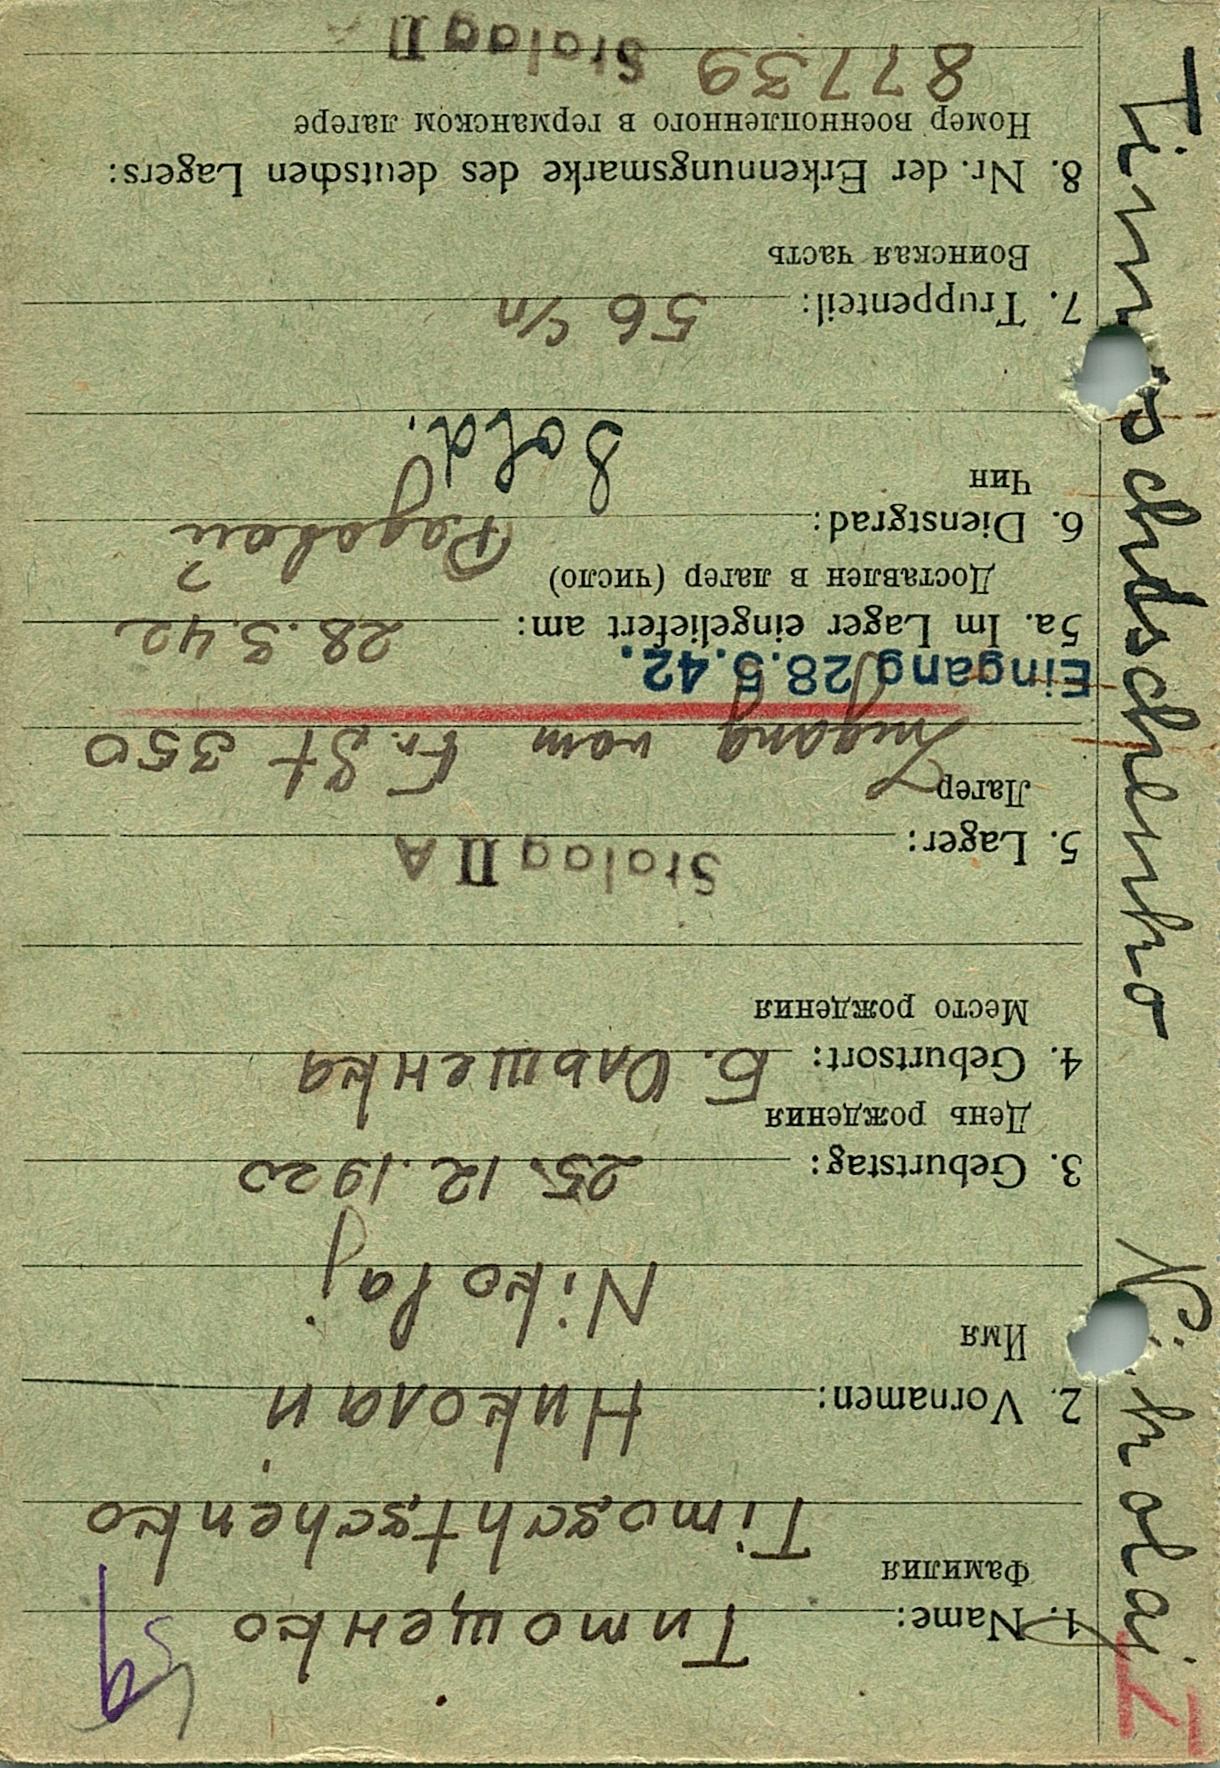 I
1. Name: Тимощенко
Фамилия
Timoschtschenko
2. Vornamen: Николай
Имя
Nikolaj
3. Geburtstag: 25.12.1920
День рождения
4. Geburtsort: Б. Ольшенка
Место рождения
5. Lager: Stalag II A
Лагер
Zugang vom Fr. St 350
Eingang 28.5.42.
5a. Im Lager eingeliefert am: 28.5.42
Доставлен в лагер (число)
6. Dienstgrad: Рядовой
Чин
Sold.
7. Truppenteil: 56 с/п
Воинская часть
8. Nr. der Erkennungsmarke des deutschen Lagers:
Номер военнопленного в германском лагере
87739 Stalag II A
Timoschtschenko Nikolai